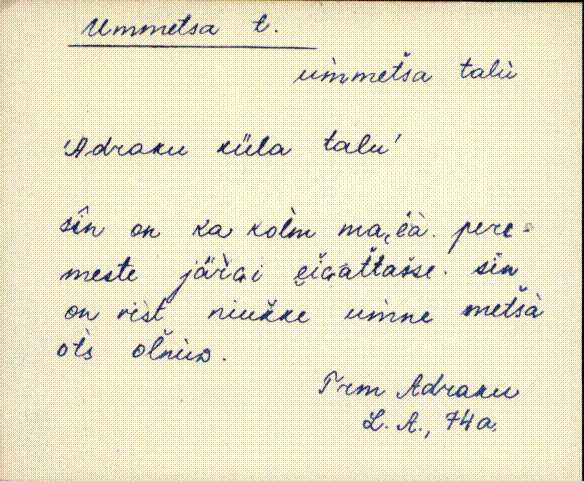 Ummetsa t.
ùmmetša talù
'Adraku küla talu'
sîn on ka kolm̀ ma,èà. pere-
meste järGi eìGàttašse. sîn
on vist niukke umne metšà
ots olnuD.
Trm Adraku
L. A., 74a.